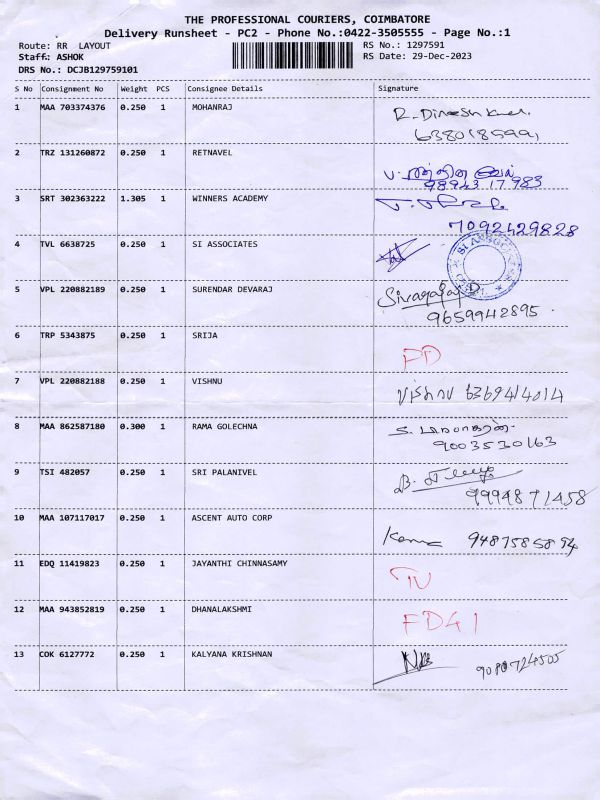 THE PROFESSIONAL COURIERS, COIMBATORE
Delivery Runsheet - PC2 - Phone No.:0422-3505555 - Page No.:1
Route: RR LAYOUT
RS No.: 1297591
Staff: ASHOK
RS Date: 29-Dec-2023
DRS No.: DCJB129759101
S No Consignment No Weight PCS Consignee Details Signature
1 MAA 703374376 0.250 1 MOHANRAJ R. Dinesh
6380185991
2 TRZ 131260872 0.250 1 RETNAVEL
98943 17983
3 SRT 302363222 1.305 1 WINNERS ACADEMY
7092429828
4 TVL 6638725 0.250 1 SI ASSOCIATES
SI ASSOCIATES
5 VPL 220882189 0.250 1 SURENDAR DEVARAJ Sivaraj D
9659942895
6 TRP 5343875 0.250 1 SRIJA PD
7 VPL 220882188 0.250 1 VISHNU Vishnu 6369414014
8 MAA 862587180 0.300 1 RAMA GOLECHNA
9003530163
9 TSI 482057 0.250 1 SRI PALANIVEL
9994871458
10 MAA 107117017 0.250 1 ASCENT AUTO CORP 9487585894
11 EDQ 11419823 0.250 1 JAYANTHI CHINNASAMY
12 MAA 943852819 0.250 1 DHANALAKSHMI
13 COK 6127772 0.250 1 KALYANA KRISHNAN 9080724505